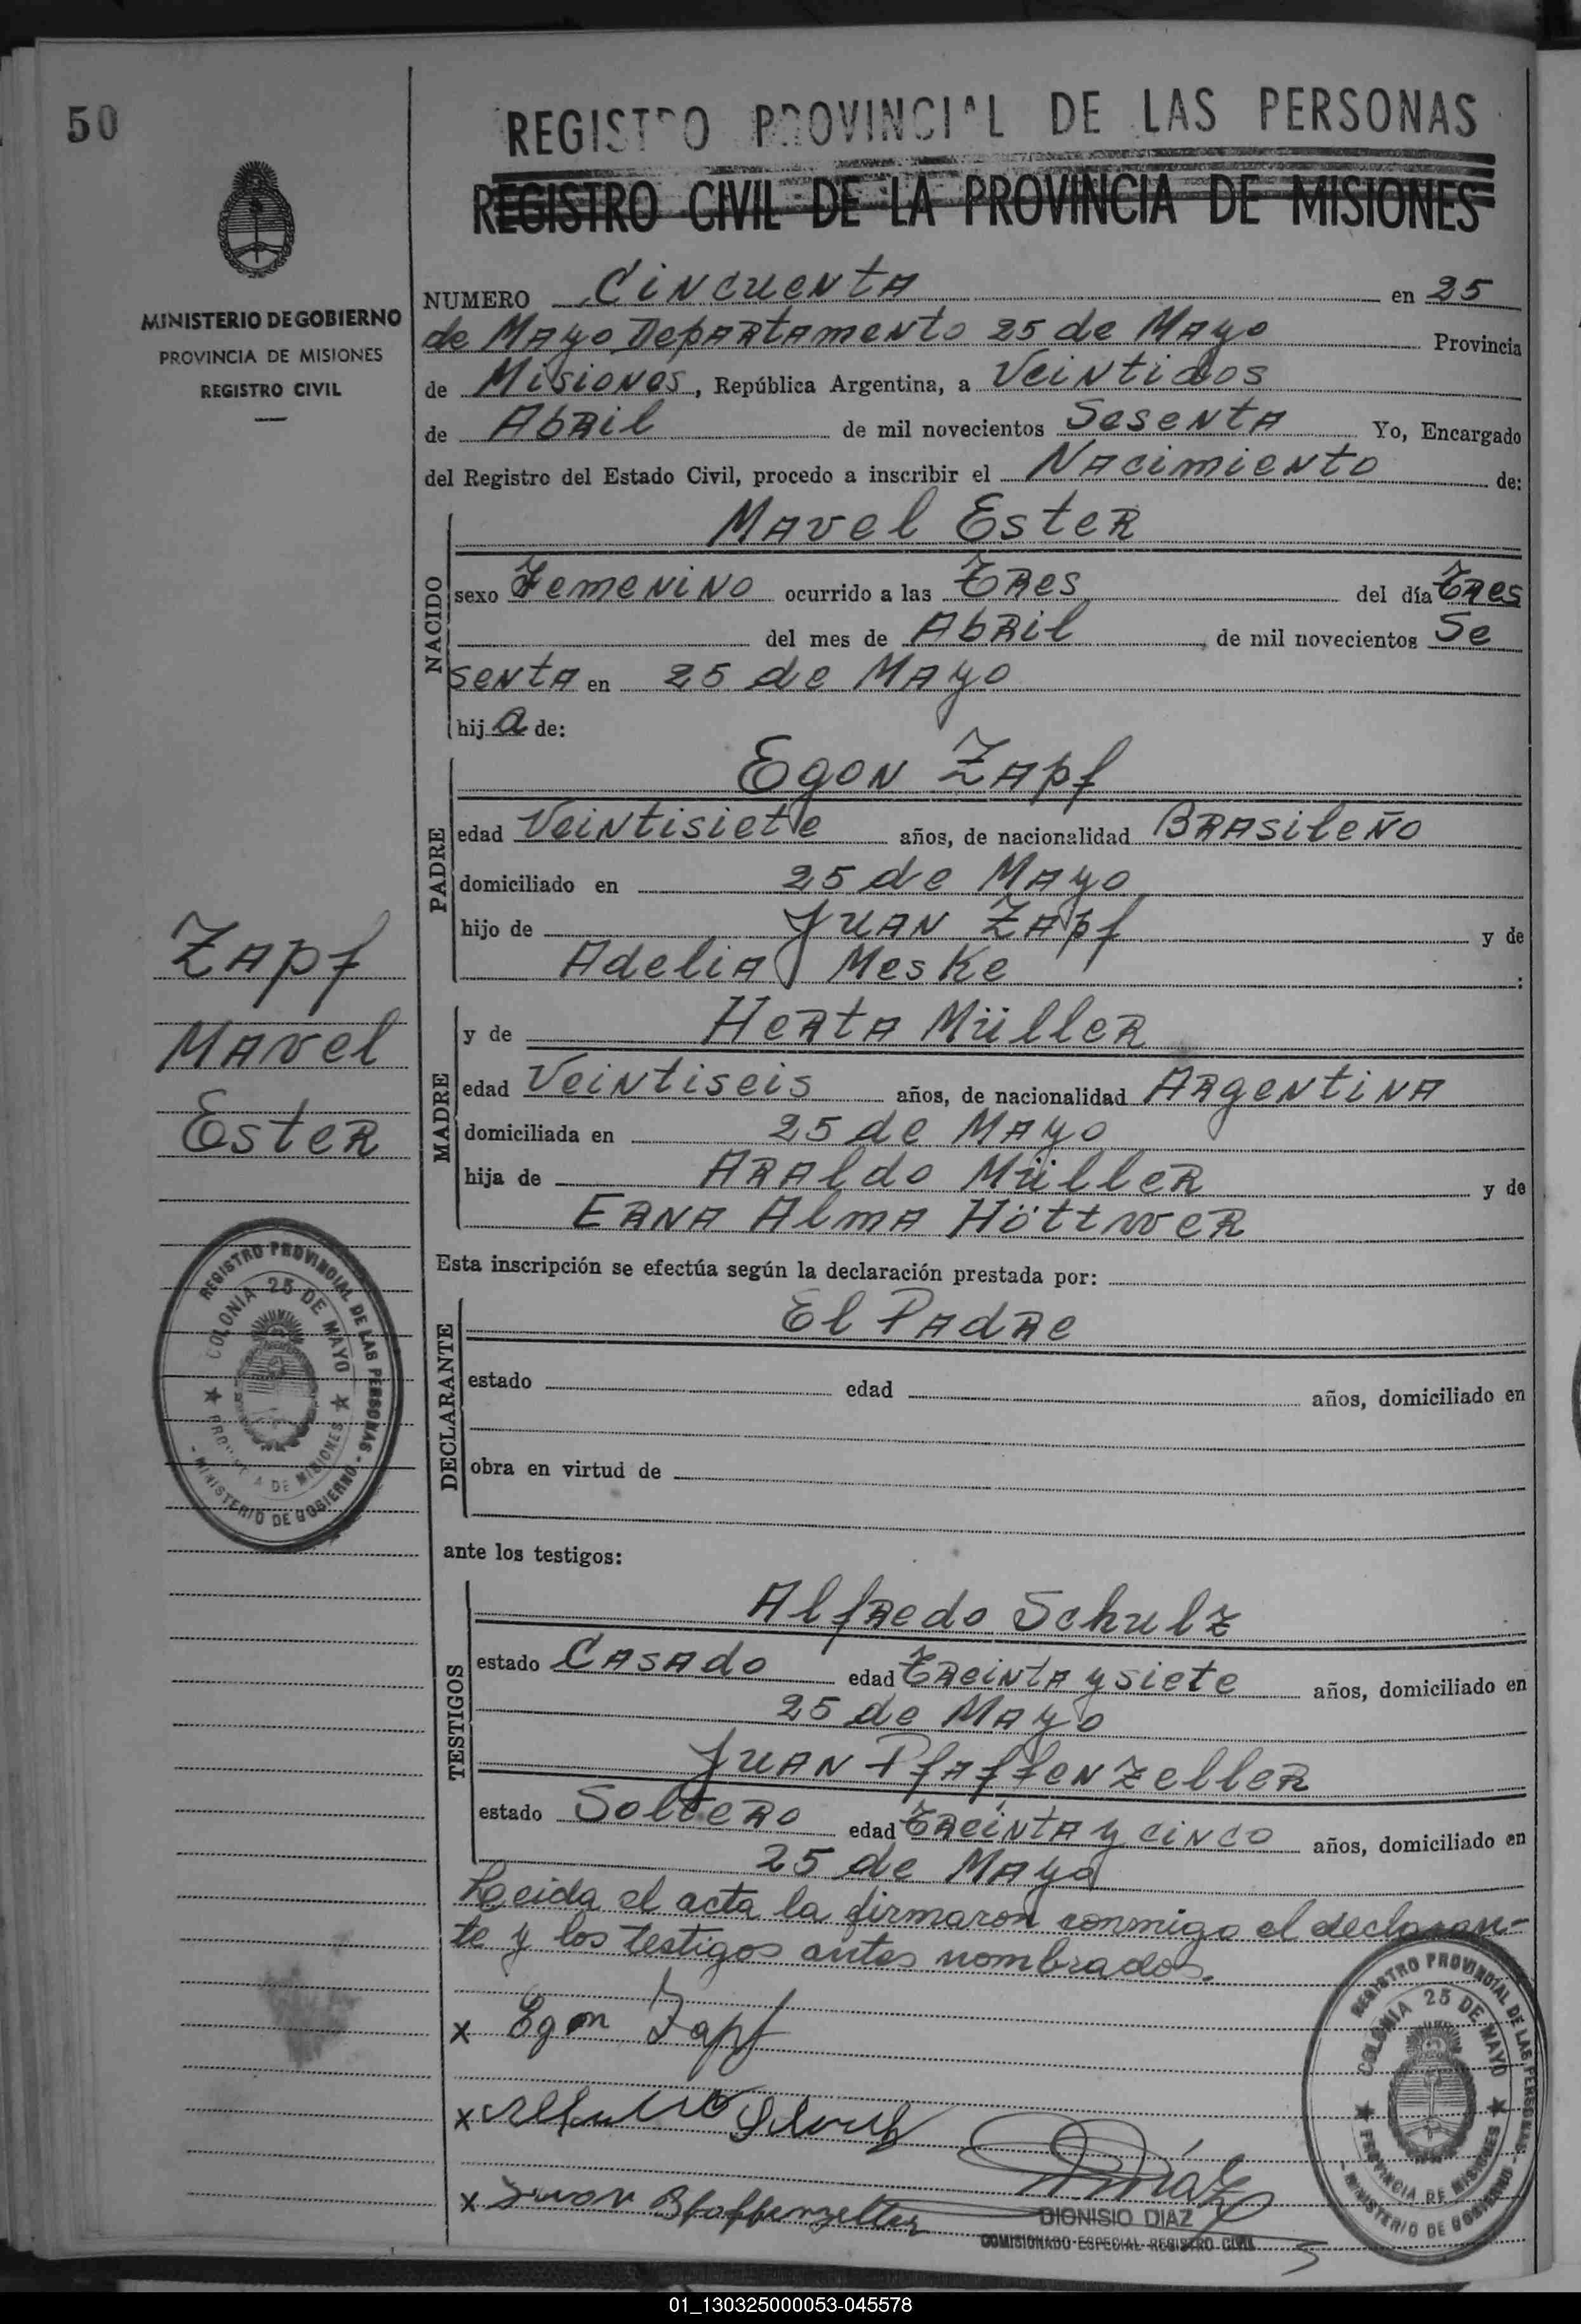 50
REGISTRO PROVINCIAL DE LAS PERSONAS
REGISTRO CIVIL DE LA PROVINCIA DE MISIONES
MINISTERIO DE GOBIERNO
PROVINCIA DE MISIONES
REGISTRO CIVIL
NUMERO Cincuenta en 25
de Mayo Departamento 25 de Mayo Provincia
de Misiones, República Argentina, a Veintidos
de Abril de mil novecientos Sesenta Yo, Encargado
del Registro del Estado Civil, procedo a inscribir el Nacimiento de:
NACIDO
Mavel Ester
sexo Femenino ocurrido a las Tres del día Tres
del mes de Abril, de mil novecientos Se
senta en 25 de Mayo
hija de:
PADRE
Egon Zapf
edad Veintisiete años, de nacionalidad Brasileño
domiciliado en 25 de Mayo
hijo de Juan Zapf y de
Adelia Meske :
Zapf
Mavel
Ester
MADRE
y de Herta Müller
edad Veintiseis años, de nacionalidad Argentina
domiciliada en 25 de Mayo
hija de Araldo Müller y de
Erna Alma Höttwer
Esta inscripción se efectúa según la declaración prestada por:
DECLARANTE
El Padre
estado edad años, domiciliado en
obra en virtud de
REGISTRO PROVINCIAL DE LAS PERSONAS
COLONIA 25 DE MAYO
PROVINCIA DE MISIONES
- MINISTERIO DE GOBIERNO -
ante los testigos:
TESTIGOS
Alfredo Schulz
estado Casado edad Treinta y siete años, domiciliado en
25 de Mayo
Juan Pfaffenzeller
estado Soltero edad Treinta y cinco años, domiciliado en
25 de Mayo
Leida el acta la firmaron conmigo el declaran-
te y los testigos antes nombrados.
x Egon Zapf
x
x Juan Pfaffenzeller
Diaz
DIONISIO DIAZ
COMISIONADO ESPECIAL REGISTRO CIVIL
REGISTRO PROVINCIAL DE LAS PERSONAS
COLONIA 25 DE MAYO
PROVINCIA DE MISIONES
- MINISTERIO DE GOBIERNO -
01_130325000053-045578